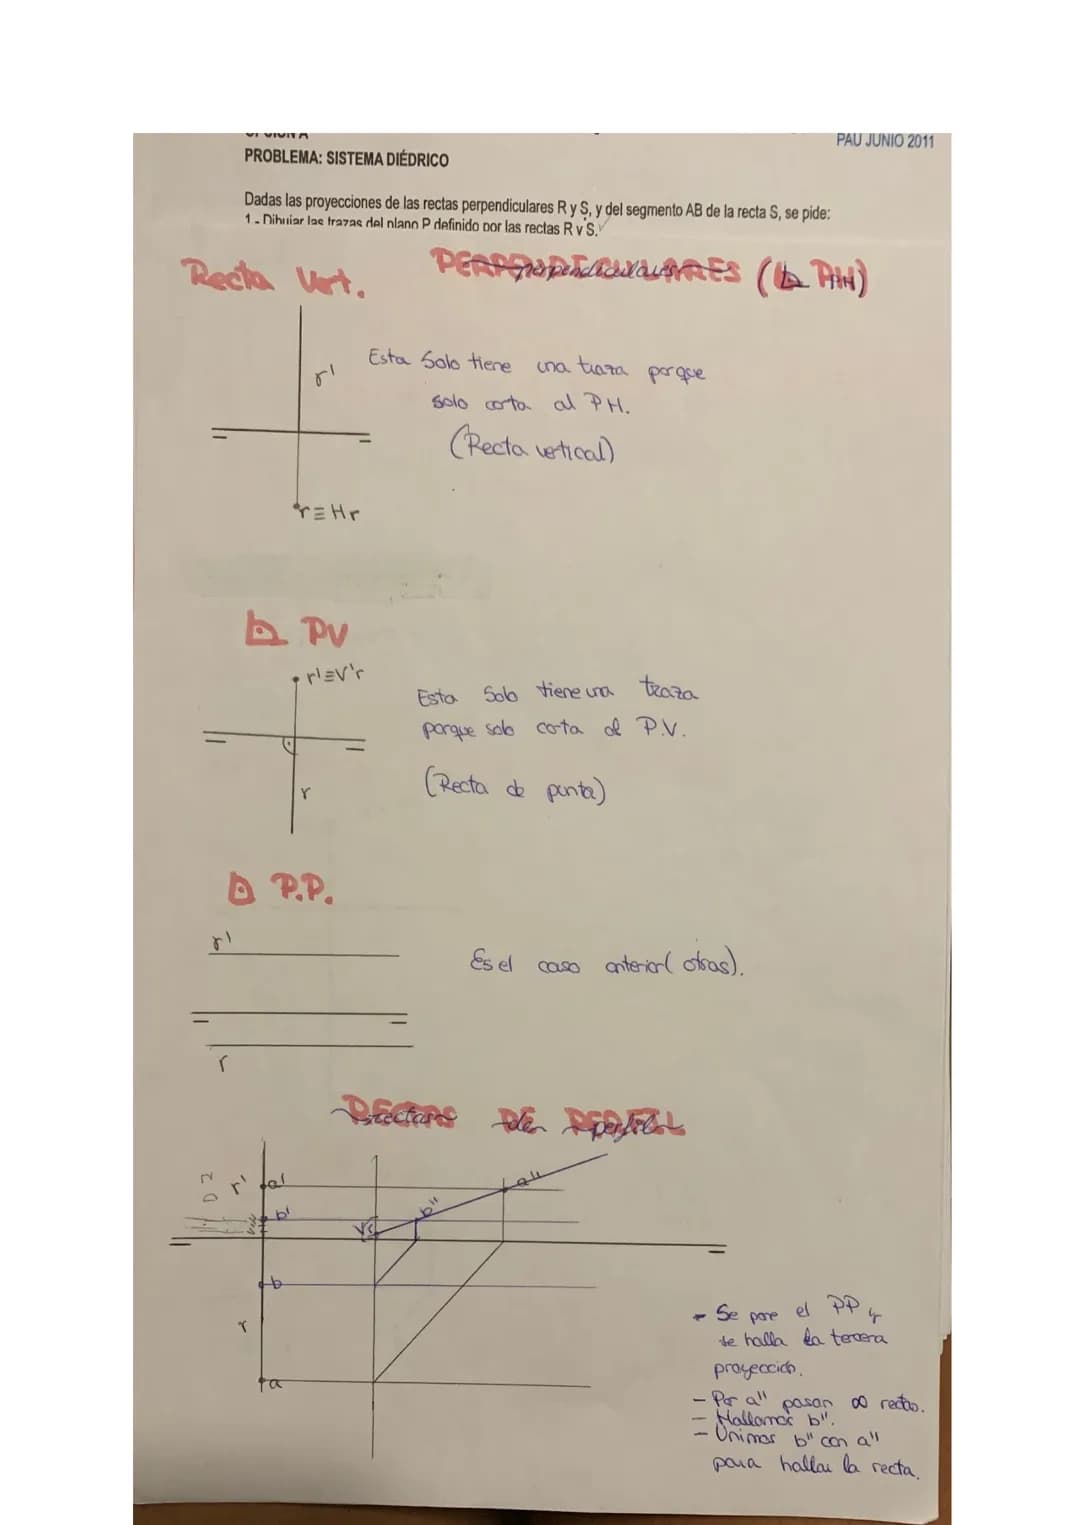 PAU JUNIO 2011
PROBLEMA: SISTEMA DIÉDRICO
Dadas las proyecciones de las rectas perpendiculares R y S, y del segmento AB de la recta S, se pide:
1.- Dibujar las trazas del plano P definido por las rectas R y S.
Recta Vert.
PERPENDICULARES (⊾ PH)
perpendiculares
r'
Esta Solo tiene una traza porque
solo corta al PH.
(Recta vertical)
r≡Hr
⊾ PV
r'≡V'r
Esta Solo tiene una traza
porque solo corta al P.V.
(Recta de punta)
r
⊾ P.P.
r'
Es el caso anterior (otras).
r
RECTAS DE PERFIL
rectas de perfil
r' a' a''
b' b''
b
r
a
- Se pone el PP y
se halla la tercera
proyección.
- Por a'' pasan ∞ rectas.
- Hallamos b''.
- Unimos b'' con a''
para hallar la recta.